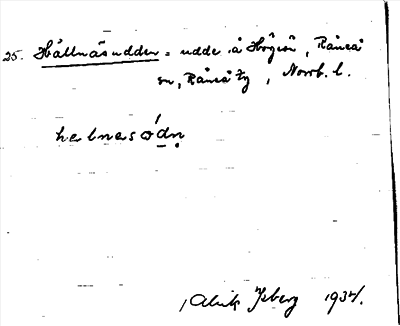 25. Hällnäsudden = udde å Högsön, Råneå
sn, Råneå tg, Norrb. l.
helnesödn
Alrik Isberg 1934.